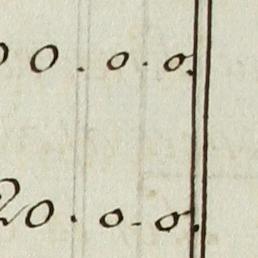 00 . 0 . 0.
20 . 0 - 0.